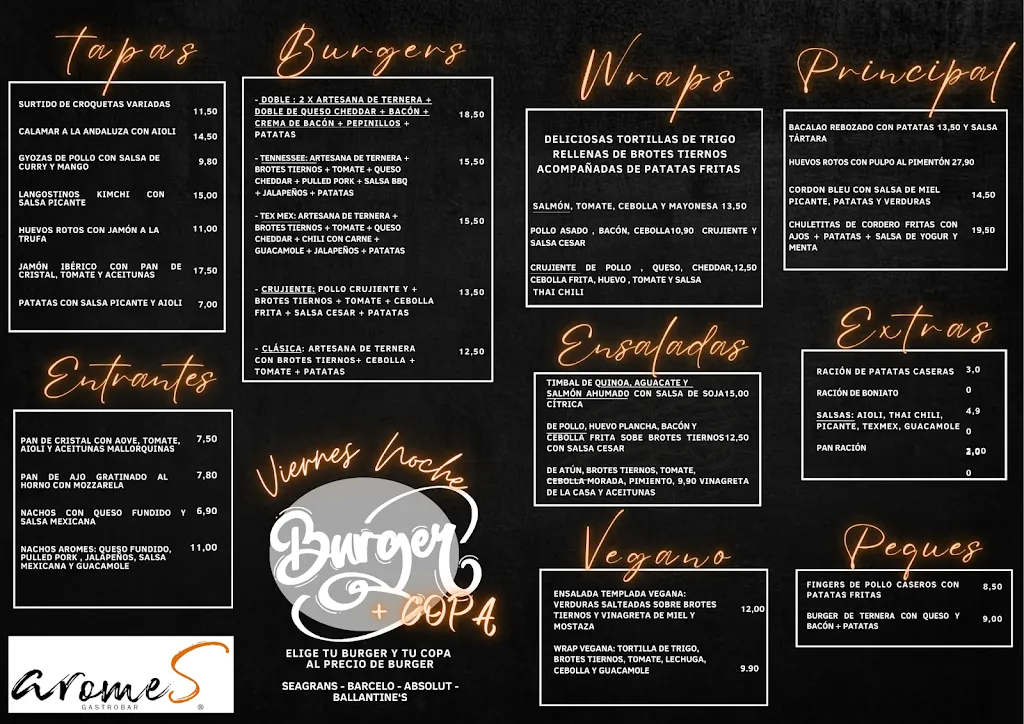 Tapas
SURTIDO DE CROQUETAS VARIADAS
11,50
CALAMAR A LA ANDALUZA CON AIOLI
14,50
GYOZAS DE POLLO CON SALSA DE
CURRY Y MANGO
9,80
LANGOSTINOS KIMCHI CON
SALSA PICANTE
15,00
HUEVOS ROTOS CON JAMÓN A LA
TRUFA
11,00
JAMÓN IBÉRICO CON PAN DE
CRISTAL, TOMATE Y ACEITUNAS
17,50
PATATAS CON SALSA PICANTE Y AIOLI
7,00
Entrantes
PAN DE CRISTAL CON AOVE, TOMATE,
AIOLI Y ACEITUNAS MALLORQUINAS
7,50
PAN DE AJO GRATINADO AL
HORNO CON MOZZARELA
7,80
NACHOS CON QUESO FUNDIDO Y
SALSA MEXICANA
6,90
NACHOS AROMES: QUESO FUNDIDO,
PULLED PORK , JALAPEÑOS, SALSA
MEXICANA Y GUACAMOLE
11,00
aromeS
GASTROBAR
®
Burgers
- DOBLE : 2 X ARTESANA DE TERNERA +
DOBLE DE QUESO CHEDDAR + BACÓN +
CREMA DE BACÓN + PEPINILLOS +
PATATAS
18,50
- TENNESSEE: ARTESANA DE TERNERA +
BROTES TIERNOS + TOMATE + QUESO
CHEDDAR + PULLED PORK + SALSA BBQ
+ JALAPEÑOS + PATATAS
15,50
- TEX MEX: ARTESANA DE TERNERA +
BROTES TIERNOS + TOMATE + QUESO
CHEDDAR + CHILI CON CARNE +
GUACAMOLE + JALAPEÑOS + PATATAS
15,50
- CRUJIENTE: POLLO CRUJIENTE Y +
BROTES TIERNOS + TOMATE + CEBOLLA
FRITA + SALSA CESAR + PATATAS
13,50
- CLÁSICA: ARTESANA DE TERNERA
CON BROTES TIERNOS+ CEBOLLA +
TOMATE + PATATAS
12,50
Viernes Noche
Burger
+ COPA
ELIGE TU BURGER Y TU COPA
AL PRECIO DE BURGER
SEAGRANS - BARCELO - ABSOLUT -
BALLANTINE'S
Wraps
DELICIOSAS TORTILLAS DE TRIGO
RELLENAS DE BROTES TIERNOS
ACOMPAÑADAS DE PATATAS FRITAS
SALMÓN, TOMATE, CEBOLLA Y MAYONESA 13,50
POLLO ASADO , BACÓN, CEBOLLA10,90 CRUJIENTE Y
SALSA CESAR
CRUJIENTE DE POLLO , QUESO, CHEDDAR,12,50
CEBOLLA FRITA, HUEVO , TOMATE Y SALSA
THAI CHILI
Ensaladas
TIMBAL DE QUINOA, AGUACATE Y
SALMÓN AHUMADO CON SALSA DE SOJA15,00
CÍTRICA
DE POLLO, HUEVO PLANCHA, BACÓN Y
CEBOLLA FRITA SOBE BROTES TIERNOS12,50
CON SALSA CESAR
DE ATÚN, BROTES TIERNOS, TOMATE,
CEBOLLA MORADA, PIMIENTO, 9,90 VINAGRETA
DE LA CASA Y ACEITUNAS
Vegano
ENSALADA TEMPLADA VEGANA:
VERDURAS SALTEADAS SOBRE BROTES
TIERNOS Y VINAGRETA DE MIEL Y
MOSTAZA
12,00
WRAP VEGANA: TORTILLA DE TRIGO,
BROTES TIERNOS, TOMATE, LECHUGA,
CEBOLLA Y GUACAMOLE
9.90
Principal
BACALAO REBOZADO CON PATATAS 13,50 Y SALSA
TÁRTARA
HUEVOS ROTOS CON PULPO AL PIMENTÓN 27,90
CORDON BLEU CON SALSA DE MIEL
PICANTE, PATATAS Y VERDURAS
14,50
CHULETITAS DE CORDERO FRITAS CON
AJOS + PATATAS + SALSA DE YOGUR Y
MENTA
19,50
Extras
RACIÓN DE PATATAS CASERAS
3,0
0
RACIÓN DE BONIATO
4,9
0
SALSAS: AIOLI, THAI CHILI,
PICANTE, TEXMEX, GUACAMOLE
PAN RACIÓN
0
Peques
FINGERS DE POLLO CASEROS CON
PATATAS FRITAS
8,50
BURGER DE TERNERA CON QUESO Y
BACÓN + PATATAS
9,00